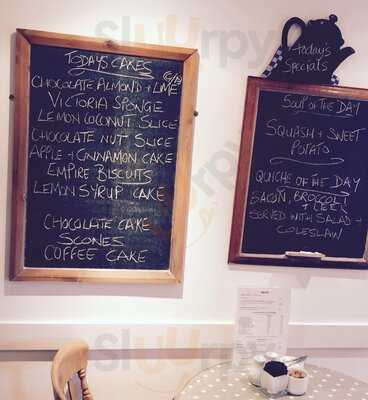 TODAY'S CAKES
CHOCOLATE ALMOND + LIME
VICTORIA SPONGE
LEMON COCONUT SLICE
CHOCOLATE NUT SLICE
APPLE + CINNAMON CAKE
EMPIRE BISCUITS
LEMON SYRUP CAKE
CHOCOLATE CAKE
SCONES
COFFEE CAKE
Today's
Specials
SOUP OF THE DAY
SQUASH + SWEET
POTATO
QUICHE OF THE DAY
BACON, BROCCOLI
+ LEEK
SERVED WITH SALAD +
COLESLAW
Sluurpy
Sluurpy